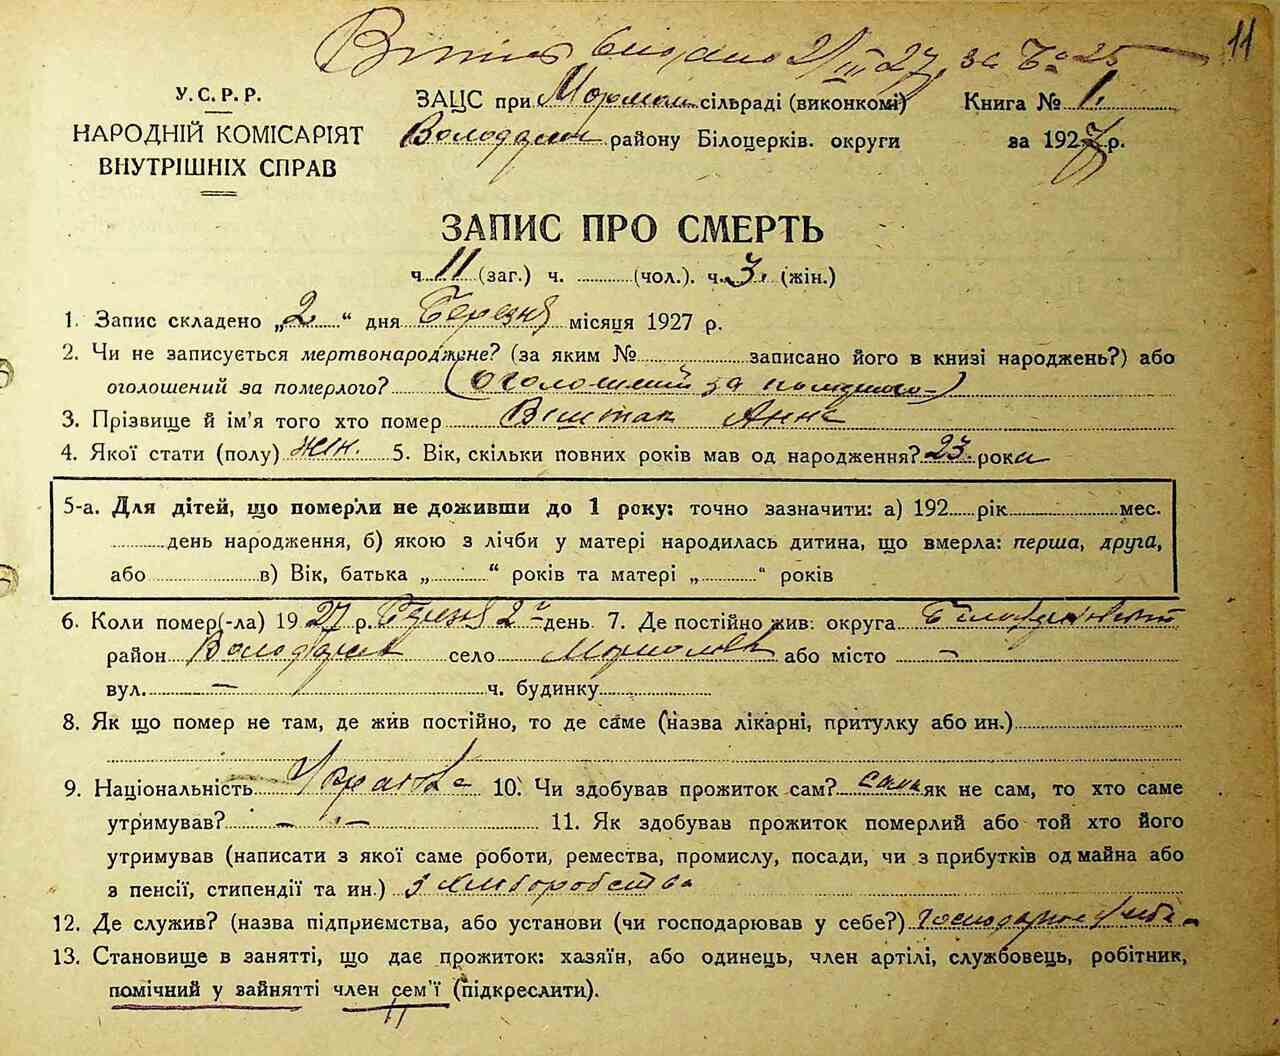 Витяг видано 2/III 27. за № 25
11
У.С.Р.Р.
НАРОДНІЙ КОМІСАРІЯТ
ВНУТРІШНІХ СПРАВ
ЗАЦС при сільраді (виконкомі) Книга № 1.
Володар району Білоцерків. округи за 1927 р.
ЗАПИС ПРО СМЕРТЬ
ч. 11 (заг.) ч. (чол.). ч. 3. (жін.)
1. Запис складено „2" дня Березня місяця 1927 р.
2. Чи не записується мертвонароджене? (за яким № записано його в книзі народжень?) або
оголошений за померлого? (оголошений за померлого)
3. Прізвище й ім'я того хто помер Віштак Анна
4. Якої стати (полу) жін. 5. Вік, скільки повних років мав од народження? 23 рока
5-а. Для дітей, що померли не доживши до 1 року: точно зазначити: а) 192 рік мес.
день народження, б) якою з лічби у матері народилась дитина, що вмерла: перша, друга,
або в) Вік, батька „ " років та матері „ " років
6. Коли помер(-ла) 1927 р. Березня 2 день 7. Де постійно жив: округа
район село або місто –
вул. – ч. будинку
8. Як що помер не там, де жив постійно, то де саме (назва лікарні, притулку або ин.)
9. Національність Українка 10. Чи здобував прожиток сам? сама як не сам, то хто саме
утримував? – . – 11. Як здобував прожиток померлий або той хто його
утримував (написати з якої саме роботи, ремества, промислу, посади, чи з прибутків од майна або
з пенсії, стипендії та ин.) з хліборобства
12. Де служив? (назва підприємства, або установи (чи господарював у себе?)
13. Становище в занятті, що дає прожиток: хазяїн, або одинець, член артілі, службовець, робітник,
помічний у зайнятті член сем'ї (підкреслити).